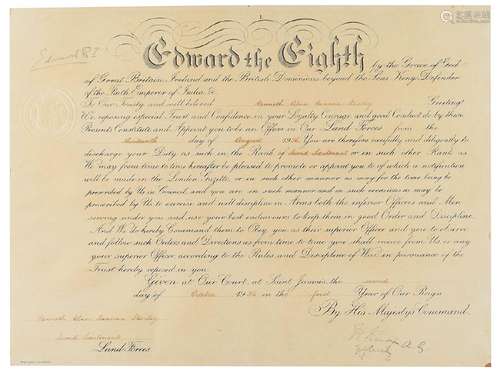 Edward R I
Edward the Eighth by the Grace of God
of Great Britain, Ireland and the British Dominions beyond the Seas King, Defender
of the Faith Emperor of India &c
To Our Trusty and well beloved Kenneth Greeting!
We reposing especial Trust and Confidence in your Loyalty, Courage and good Conduct do by these
Presents Constitute and Appoint you to be an Officer in Our Land Forces from the
day of August 1936. You are therefore carefully and diligently to
discharge your Duty as such in the Rank of Second Lieutenant or in such other Rank as
We may from time to time hereafter be pleased to promote or appoint you to of which a notification
will be made in the London Gazette, or in such other manner as may for the time being be
prescribed by Us in Council and you are in such manner and on such occasions as may be
prescribed by Us to exercise and well discipline in Arms both the inferior Officers and Men
serving under you and use your best endeavours to keep them in good Order and Discipline.
And We do hereby Command them to Obey you as their superior Officer and you to observe
and follow such Orders and Directions as from time to time you shall receive from Us, or any
your superior Officer according to the Rules and Discipline of War in pursuance of the
Trust hereby reposed in you.
Given at Our Court at Saint James's the second
day of October 1936 in the first Year of Our Reign
By His Majesty's Command.
Kenneth
Second Lieutenant
Land Forces